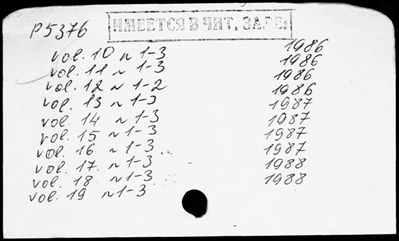 P5376
ИМЕЕТСЯ В ЧИТ. ЗАЛЕ.
vol. 10 n 1-3 1986
vol. 11 n 1-3 1986
vol. 12 n 1-2 1986
vol. 13 n 1-3 1986
vol. 14 n 1-3 1987
vol. 15 n 1-3 1987
vol. 16 n 1-3 1987
vol. 17 n 1-3 1987
vol. 18 n 1-3 1988
vol. 19 n 1-3 1988